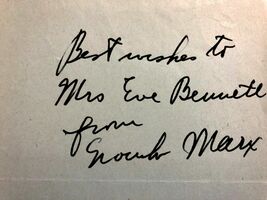 Best wishes to
Mrs Eve Bennett
from
Groucho Marx